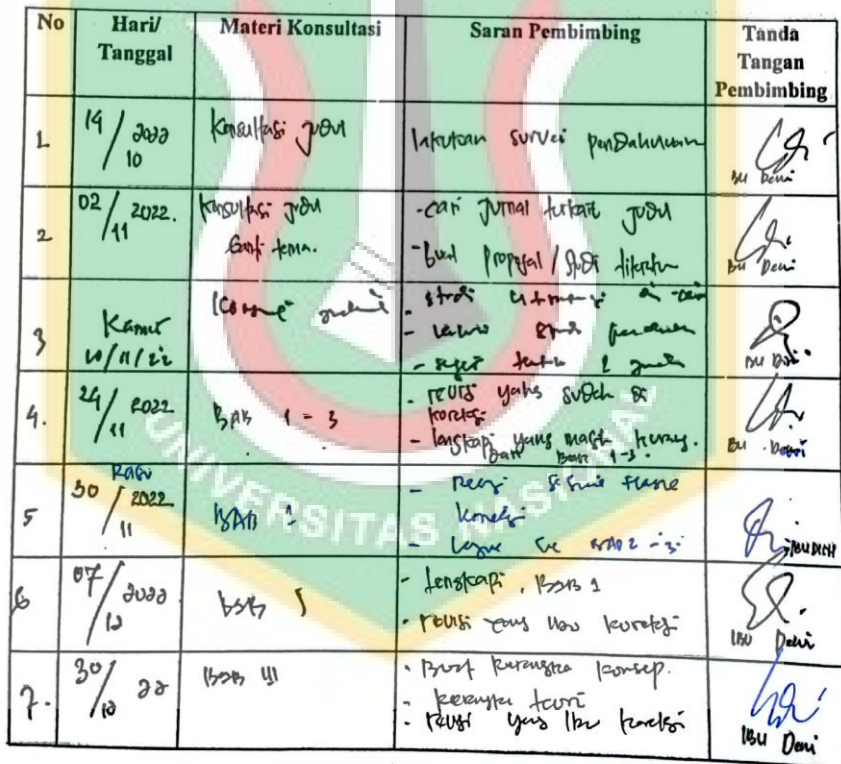 No Hari/ Tanggal Materi Konsultasi Saran Pembimbing Tanda Tangan Pembimbing
1. 14/10 2022 Konsultasi judul lakukan survei pendahuluan
Bu Deni
2 02/11 2022. Konsultasi judul - cari jurnal terkait judul
Ganti tema. - buat proposal / studi literatur
Bu Deni
3 Kamis - studi
10/11/22 - studi
-
4. 24/11 2022 BAB 1 - 3 - revisi yang sudah di
koreksi
- lengkapi yang masih kurang.
dari Bab 1-3.
Bu Deni
Rabu
5 30/11 2022 BAB 1 -
koreksi
- BAB 2 - 3
6 07/12 2022 BAB 1 - lengkapi. BAB 1
- revisi yang ibu koreksi
IBU Deni
7. 30/12 22 BAB III - Buat kerangka konsep.
- kerangka teori
- revisi yang ibu koreksi
IBU Deni
UNIVERSITAS NASIONAL